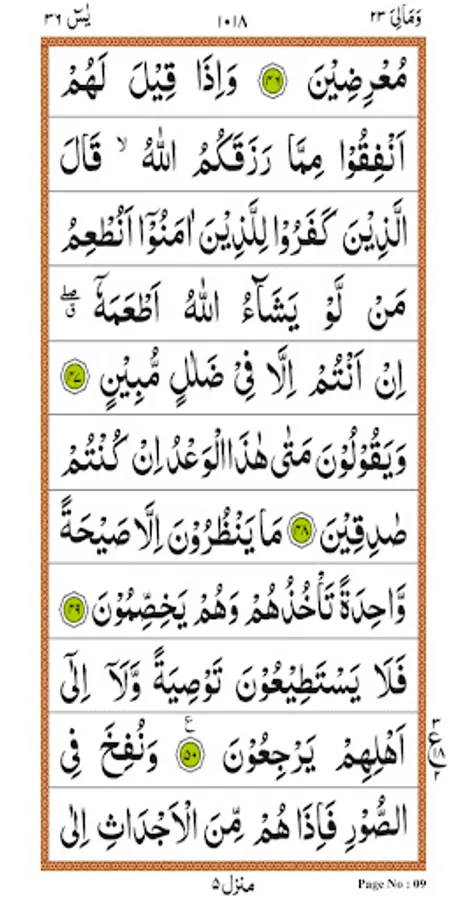 وَمَالِیَ ۲۳ ۱۰۱۸ یٰسٓ ۳۶
مُعْرِضِیْنَ ﴿۴۶﴾ وَاِذَا قِیْلَ لَهُمْ
اَنْفِقُوْا مِمَّا رَزَقَكُمُ اللّٰهُ ۙ قَالَ
الَّذِیْنَ كَفَرُوْا لِلَّذِیْنَ اٰمَنُوْۤا اَنُطْعِمُ
مَنْ لَّوْ یَشَآءُ اللّٰهُ اَطْعَمَهٗۤ ۖۗ
اِنْ اَنْتُمْ اِلَّا فِیْ ضَلٰلٍ مُّبِیْنٍ ﴿۴۷﴾
وَیَقُوْلُوْنَ مَتٰی هٰذَا الْوَعْدُ اِنْ كُنْتُمْ
صٰدِقِیْنَ ﴿۴۸﴾ مَا یَنْظُرُوْنَ اِلَّا صَیْحَةً
وَّاحِدَةً تَاْخُذُهُمْ وَهُمْ یَخِصِّمُوْنَ ﴿۴۹﴾
فَلَا یَسْتَطِیْعُوْنَ تَوْصِیَةً وَّلَاۤ اِلٰۤی
اَهْلِهِمْ یَرْجِعُوْنَ ﴿۵۰﴾ ع وَنُفِخَ فِی
۳ ع ۱۸ ۲
الصُّوْرِ فَاِذَا هُمْ مِّنَ الْاَجْدَاثِ اِلٰی
منزل ۵ Page No : 09